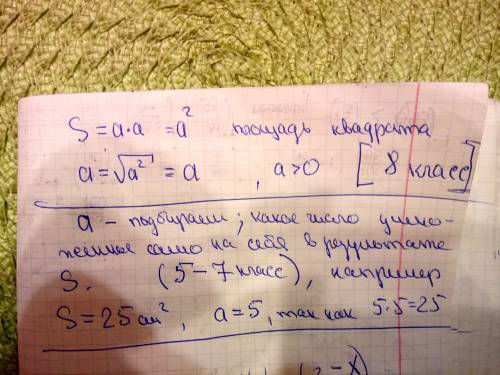 S = a·a = a² площадь квадрата
a = √a² = a , a>0 [8 класс]
a – подбираем; какое число умно-
женное само на себя в результате
S. (5–7 класс), например
S = 25 см², a = 5, так как 5·5=25